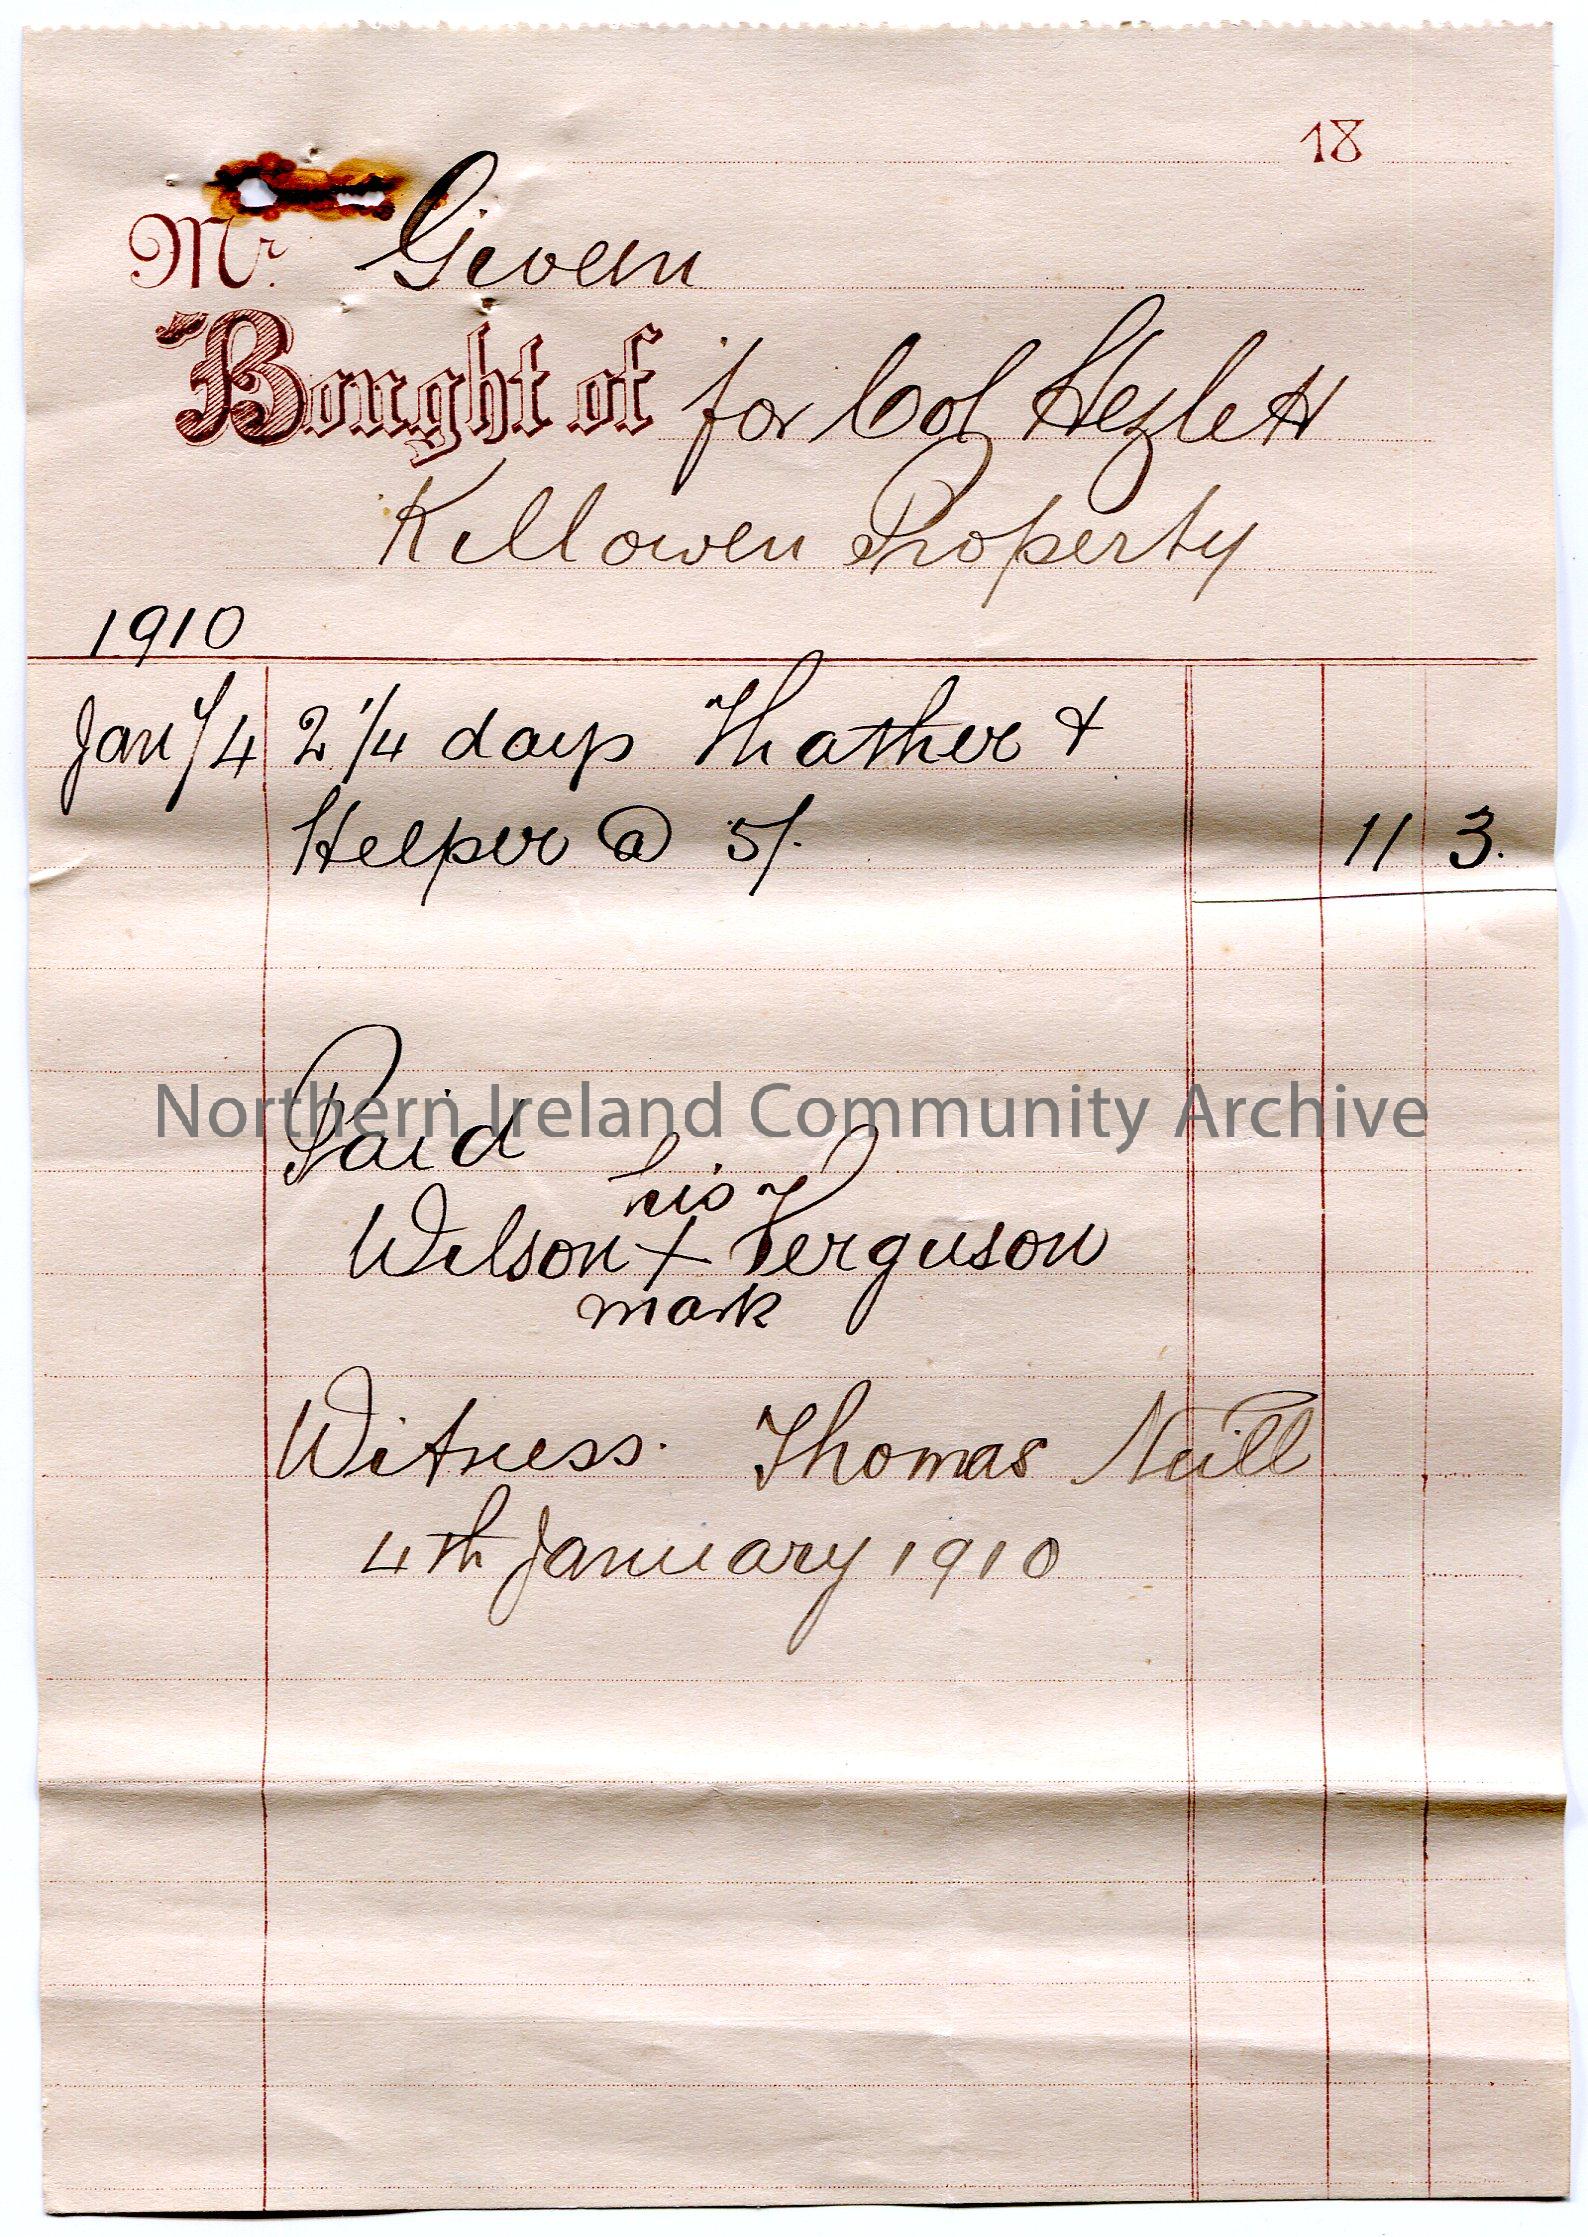 18
Mr. Given
Bought of for Col Hezlett
Killowen Property
1910
Jany/4 2 1/4 days Thather +
Helper @ 5/. 11 3.
Paid
his
Wilson + Ferguson
mark
Witness. Thomas Neill
4th January 1910
Northern Ireland Community Archive